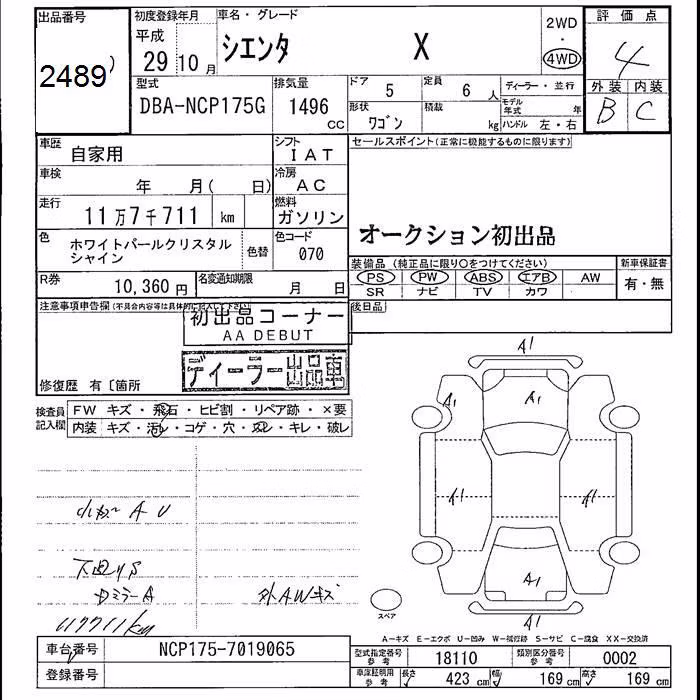 出品番号
2489
初度登録年月
平成
29 10 月
車名・グレード
シエンタ X
2WD
・
4WD
評価点
4
外装 内装
B C
型式
DBA-NCP175G
排気量
1496
CC
ドア 5
定員 6 人
形状 ワゴン
積載 kg
ディーラー・並行
モデル年式 年
ハンドル 左・右
車歴
自家用
シフト
IAT
車検
年 月( 日)
冷房
AC
走行
11万7千711 km
燃料
ガソリン
色
ホワイトパールクリスタル
シャイン
色替
色コード
070
R券
10,360 円
名変通知期限
月 日
セールスポイント(正常に機能するものに限ります)
オークション初出品
装備品(純正品に限り○をつけてください)
PS PW ABS エアB AW
SR ナビ TV カワ
新車保証書
有・無
後日品
注意事項申告欄(不具合内容等は具体的に記入して下さい)
初出品コーナー
AA DEBUT
ディーラー出品車
修復歴 有〔箇所
検査員
記入欄
FW キズ・飛石・ヒビ割・リペア跡・×要
内装 キズ・汚レ・コゲ・穴・スレ・キレ・破レ
A U
下廻りS
DミラーA
外AWキズ
117711km
A1
A1
A1
A1
A1
A1
A1
スペア
A-キズ E-エクボ U-凹み W-補修跡 S-サビ C-腐食 XX-交換済
車台番号
NCP175-7019065
登録番号
型式指定番号
参考
18110
類別区分番号
参考
0002
車庫証明用
参考
長さ 423 cm 幅 169 cm 高さ 169 cm